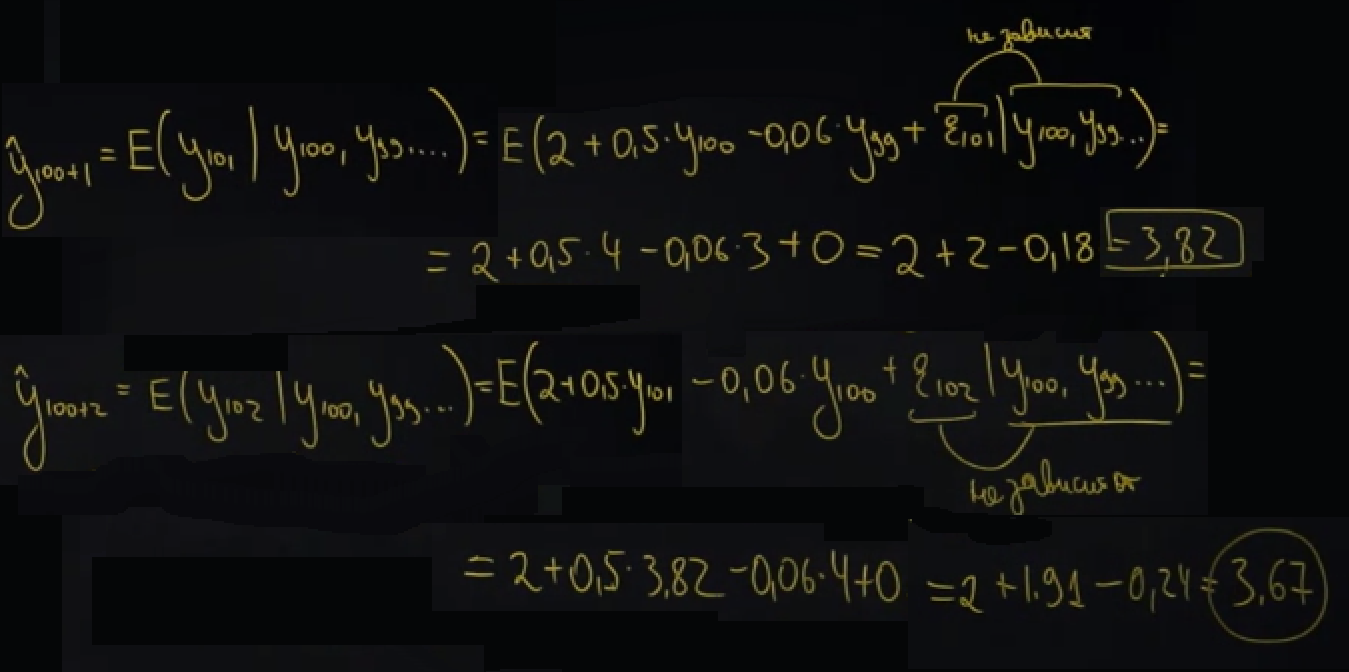 не зависят
ŷ₁₀₀₊₁ = E(y₁₀₁ | y₁₀₀, y₉₉....) = E(2 + 0,5·y₁₀₀ - 0,06·y₉₉ + ε₁₀₁ | y₁₀₀, y₉₉...) =
= 2 + 0,5·4 - 0,06·3 + 0 = 2 + 2 - 0,18 = 3,82
ŷ₁₀₀₊₂ = E(y₁₀₂ | y₁₀₀, y₉₉...) = E(2+0,5·y₁₀₁ - 0,06·y₁₀₀ + ε₁₀₂ | y₁₀₀, y₉₉...) =
не зависят
= 2 + 0,5·3,82 - 0,06·4 + 0 = 2 + 1.91 - 0,24 = 3,67